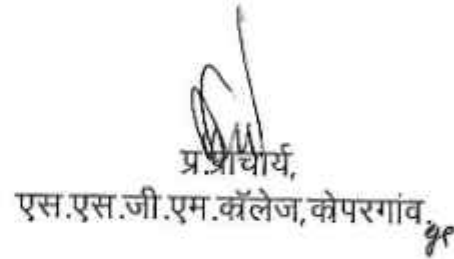 प्र.प्राचार्य,
एस.एस.जी.एम.कॉलेज,कोपरगांव.